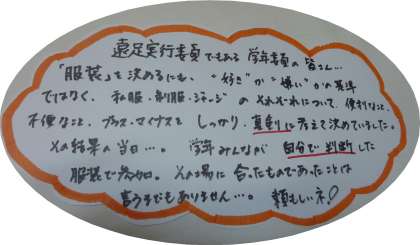 遠足実行委員でもある 学年委員の皆さん…
「服装」を決めるにも、"好き"か"嫌い"かの基準
ではなく、私服・制服・ジャージのそれぞれについて、便利なこと、
不便なこと、プラス・マイナスをしっかり、真剣に考えて決めていました。
その結果の当日…。学年みんなが 自分で判断した
服装で参加。その場に合ったものであったことは
言うまでもありません…。頼もしいネ!